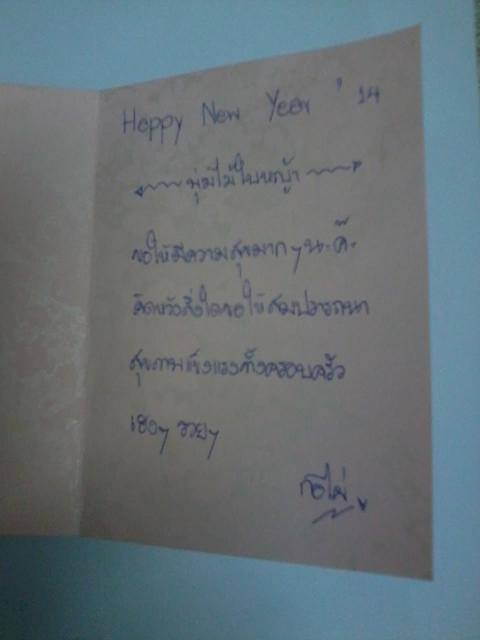 Happy New Year '14
พุ่มไม้ใบหญ้า
ขอให้มีความสุขมากๆนะค๊ะ
คิดหวังสิ่งใดขอให้สมปรารถนา
สุขภาพแข็งแรงทั้งครอบครัว
เฮงๆ รวยๆ
กอไผ่